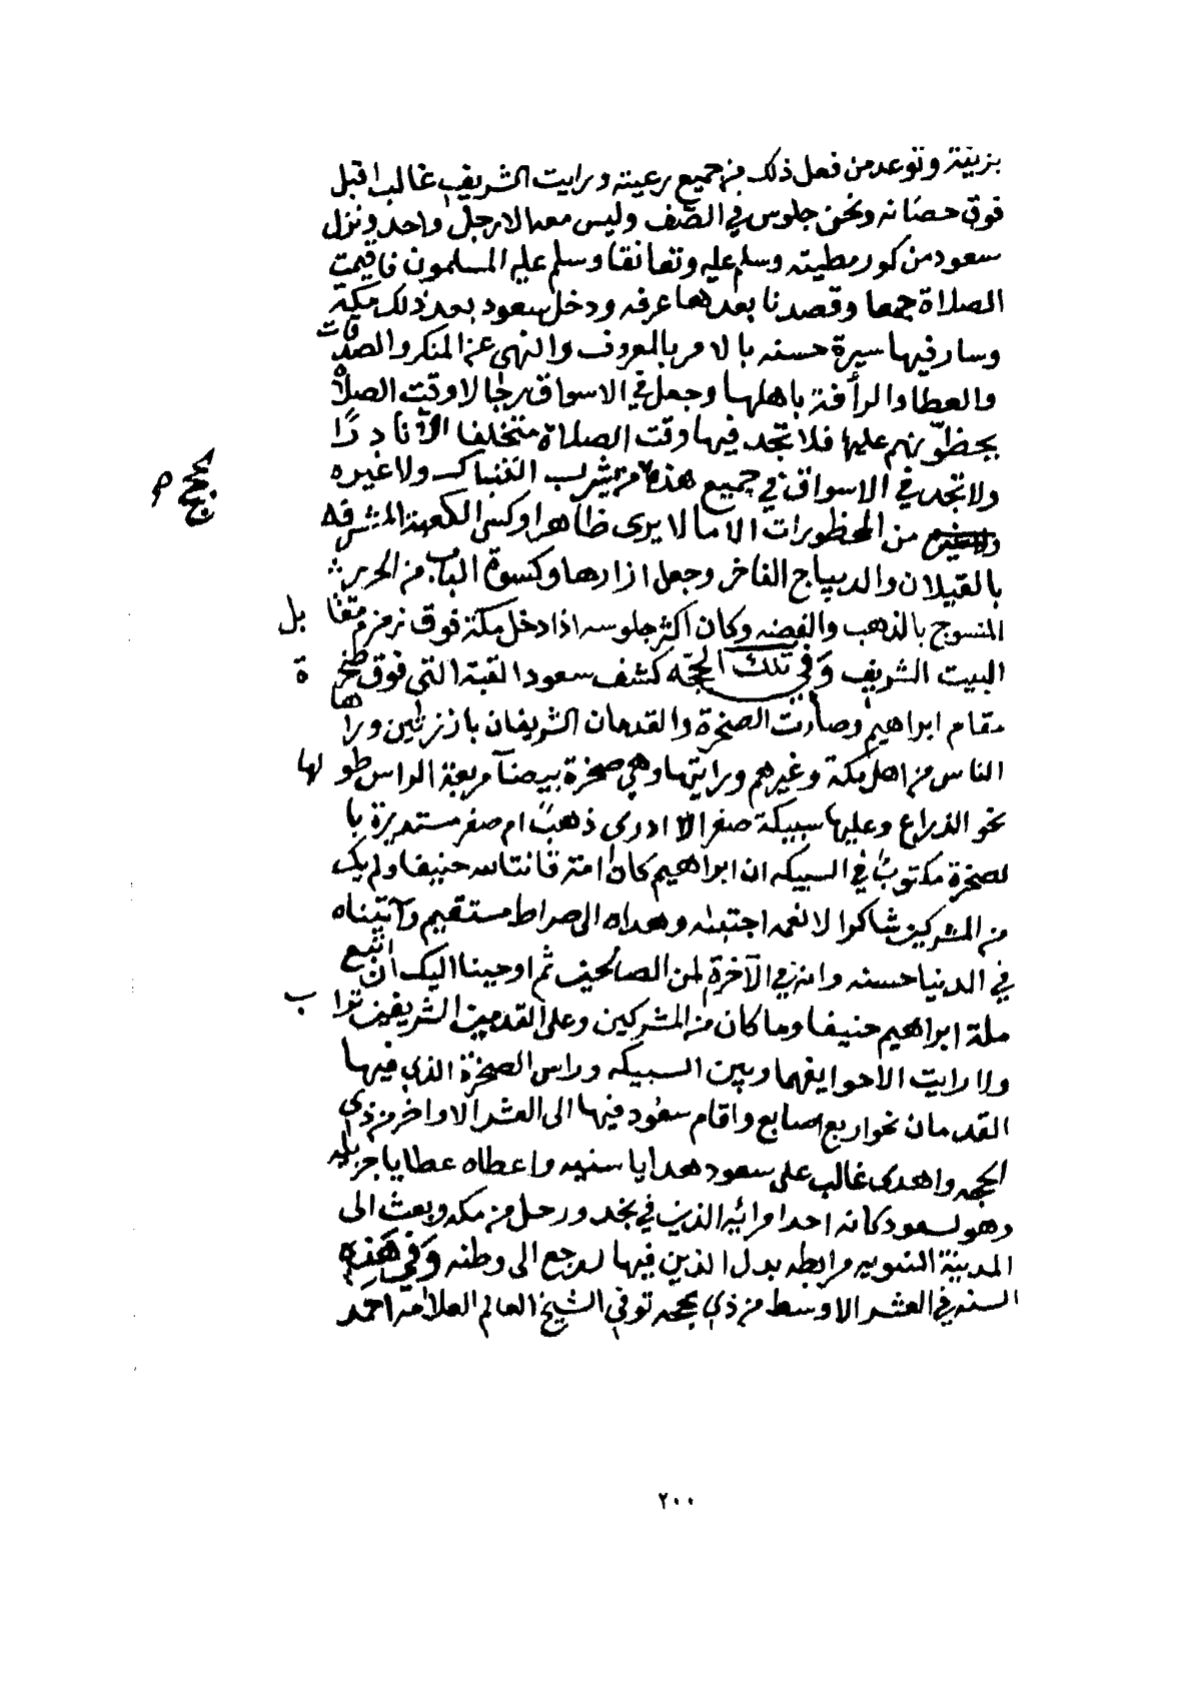 بزينة وتوعد من فعل ذلك من جميع رعيته ورايت الشريف غالب اقبل
فوق حصانه ونحن جلوس في الصف وليس معه الا رجل واحد ونزل
سعود من كور مطيته وسلم عليه وتعانقا وسلم عليه المسلمون فاقيمت
الصلاة جمعا وقصدنا بعدها عرفه ودخل سعود بعد ذلك مكة
وسار فيها سيرة حسنه بالامر بالمعروف والنهي عن المنكر والصدقات
والعطا والرأفة باهلها وجعل في الاسواق رجالا وقت الصلاة
يحظّونهم عليها فلا تجد فيها وقت الصلاة متخلفا الا نادرًا
ولا تجد في الاسواق في جميع هذه من يشرب التنباك ولا غيره
من المحظورات الا ما لا يرى ظاهرا وكسى الكعبة المشرفه
بالقيلان والديباج الفاخر وجعل ازارها وكسوة الباب من الحرير
المنسوج بالذهب والفضه وكان أكثر جلوسه اذا دخل مكة فوق زمزم مقابل
البيت الشريف وَفي تلك الحجّه كشف سعود القبة التي فوق صخرة
مقام ابراهيم وصارت الصخرة والقدمان الشريفان بارزتين ورآها
الناس من اهل مكة وغيرهم ورايتها وهي صخرة بيضآ مربعة الراس طولها
نحو الذراع وعليها سبيكة صفر لا ادري ذهبٌ ام صفر مستديرة با
لصخرة مكتوبٌ في السبيكه ان ابراهيم كان امة قانتا لله حنيفا ولم يك
من المشركين شاكرا لانعمه اجتبىٰه وهداه الى صراط مستقيم وآتيناه
في الدنيا حسنه وانه في الآخرة لمن الصالحين ثم اوحينا اليك ان اتبع
ملة ابراهيم حنيفا وما كان من المشركين وعلى القدمين الشريفين تراب
ولا رايت الاحوايفهما وبين السبيكه وراس الصخرة الذي فيها
القدمان نحو اربع اصابع واقام سعود فيها الى العشر الاواخر من ذي
الحجه واهدى غالب على سعود هدايا سنيه واعطاه عطايا جزيله
وهو لسعود كانه احد امرائه الذين في نجد ورحل من مكه وبعث الى
المدينة النبويه مرابطه بدل الذين فيها ورجع الى وطنه وَفي هَذِه
السنه في العشر الاوسط من ذي حجه توفي الشيخ العالم العلامة احمَد
٢٠٠